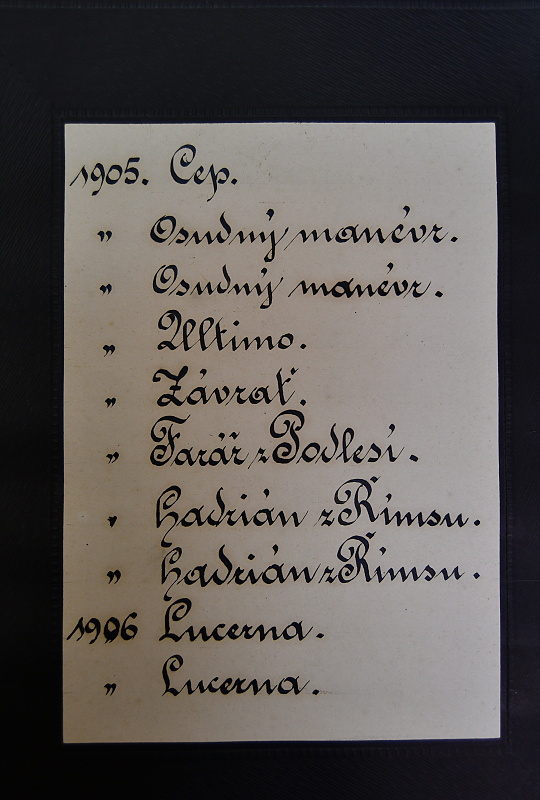 1905. Cep.
„ Osudný manévr.
„ Osudný manévr.
„ Ultimo.
„ Závrať.
„ Farář z Podlesí.
„ Hadrián z Římsu.
„ Hadrián z Římsu.
1906 Lucerna.
„ Lucerna.